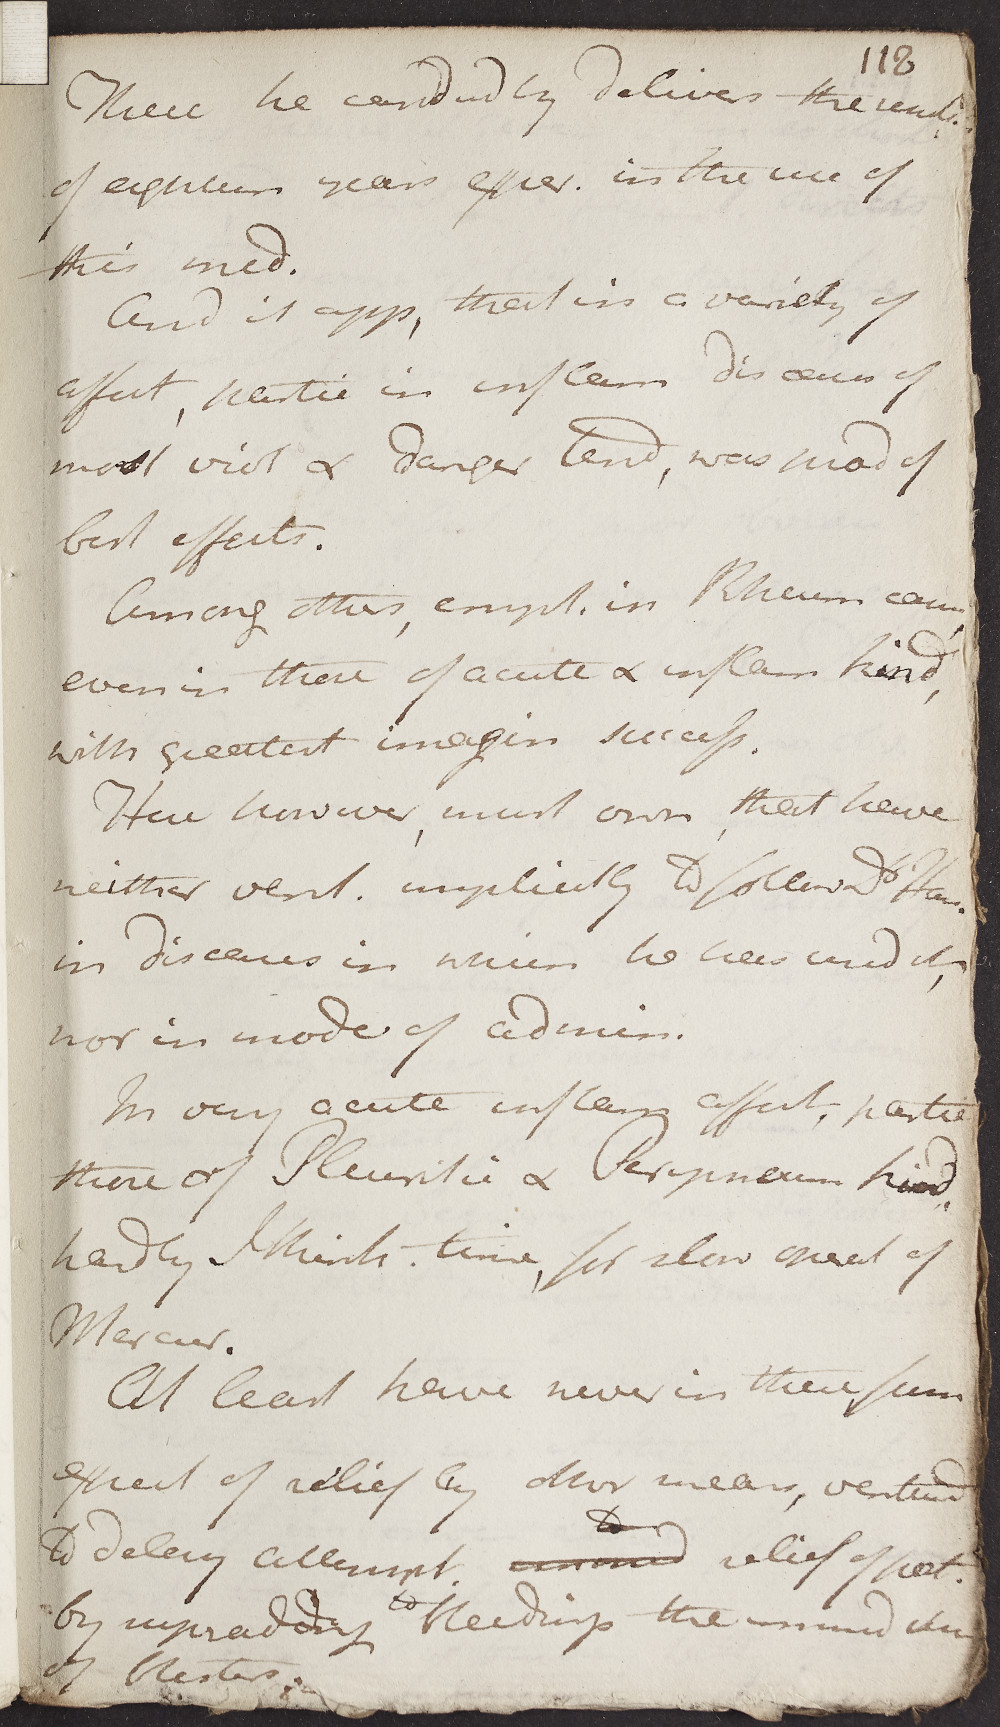 118
There he candidly delivers the result
of eighteen years exper. in the use of
this med.
And it app, that in a variety of
affect, partic in inflam diseases of
most viol & danger tend, was prod of
best effects.
Among others, empl. in Rheum cases,
even in those of acute & inflam kind,
with greatest imagin success.
Here however, must own, that have
neither vent. implicitly to follow Dr Ham.
in diseases in which he has used it,
nor in mode of admin.
In very acute inflam affect, partic
those of Pleuritic & Peripneum kind,
hardly I think. time, for slow operat of
Mercur.
At least have never in these, from
expect of relief by other means, ventured
to delay attempt. to relief of pat.
by repeated bleedings the use
of blisters.